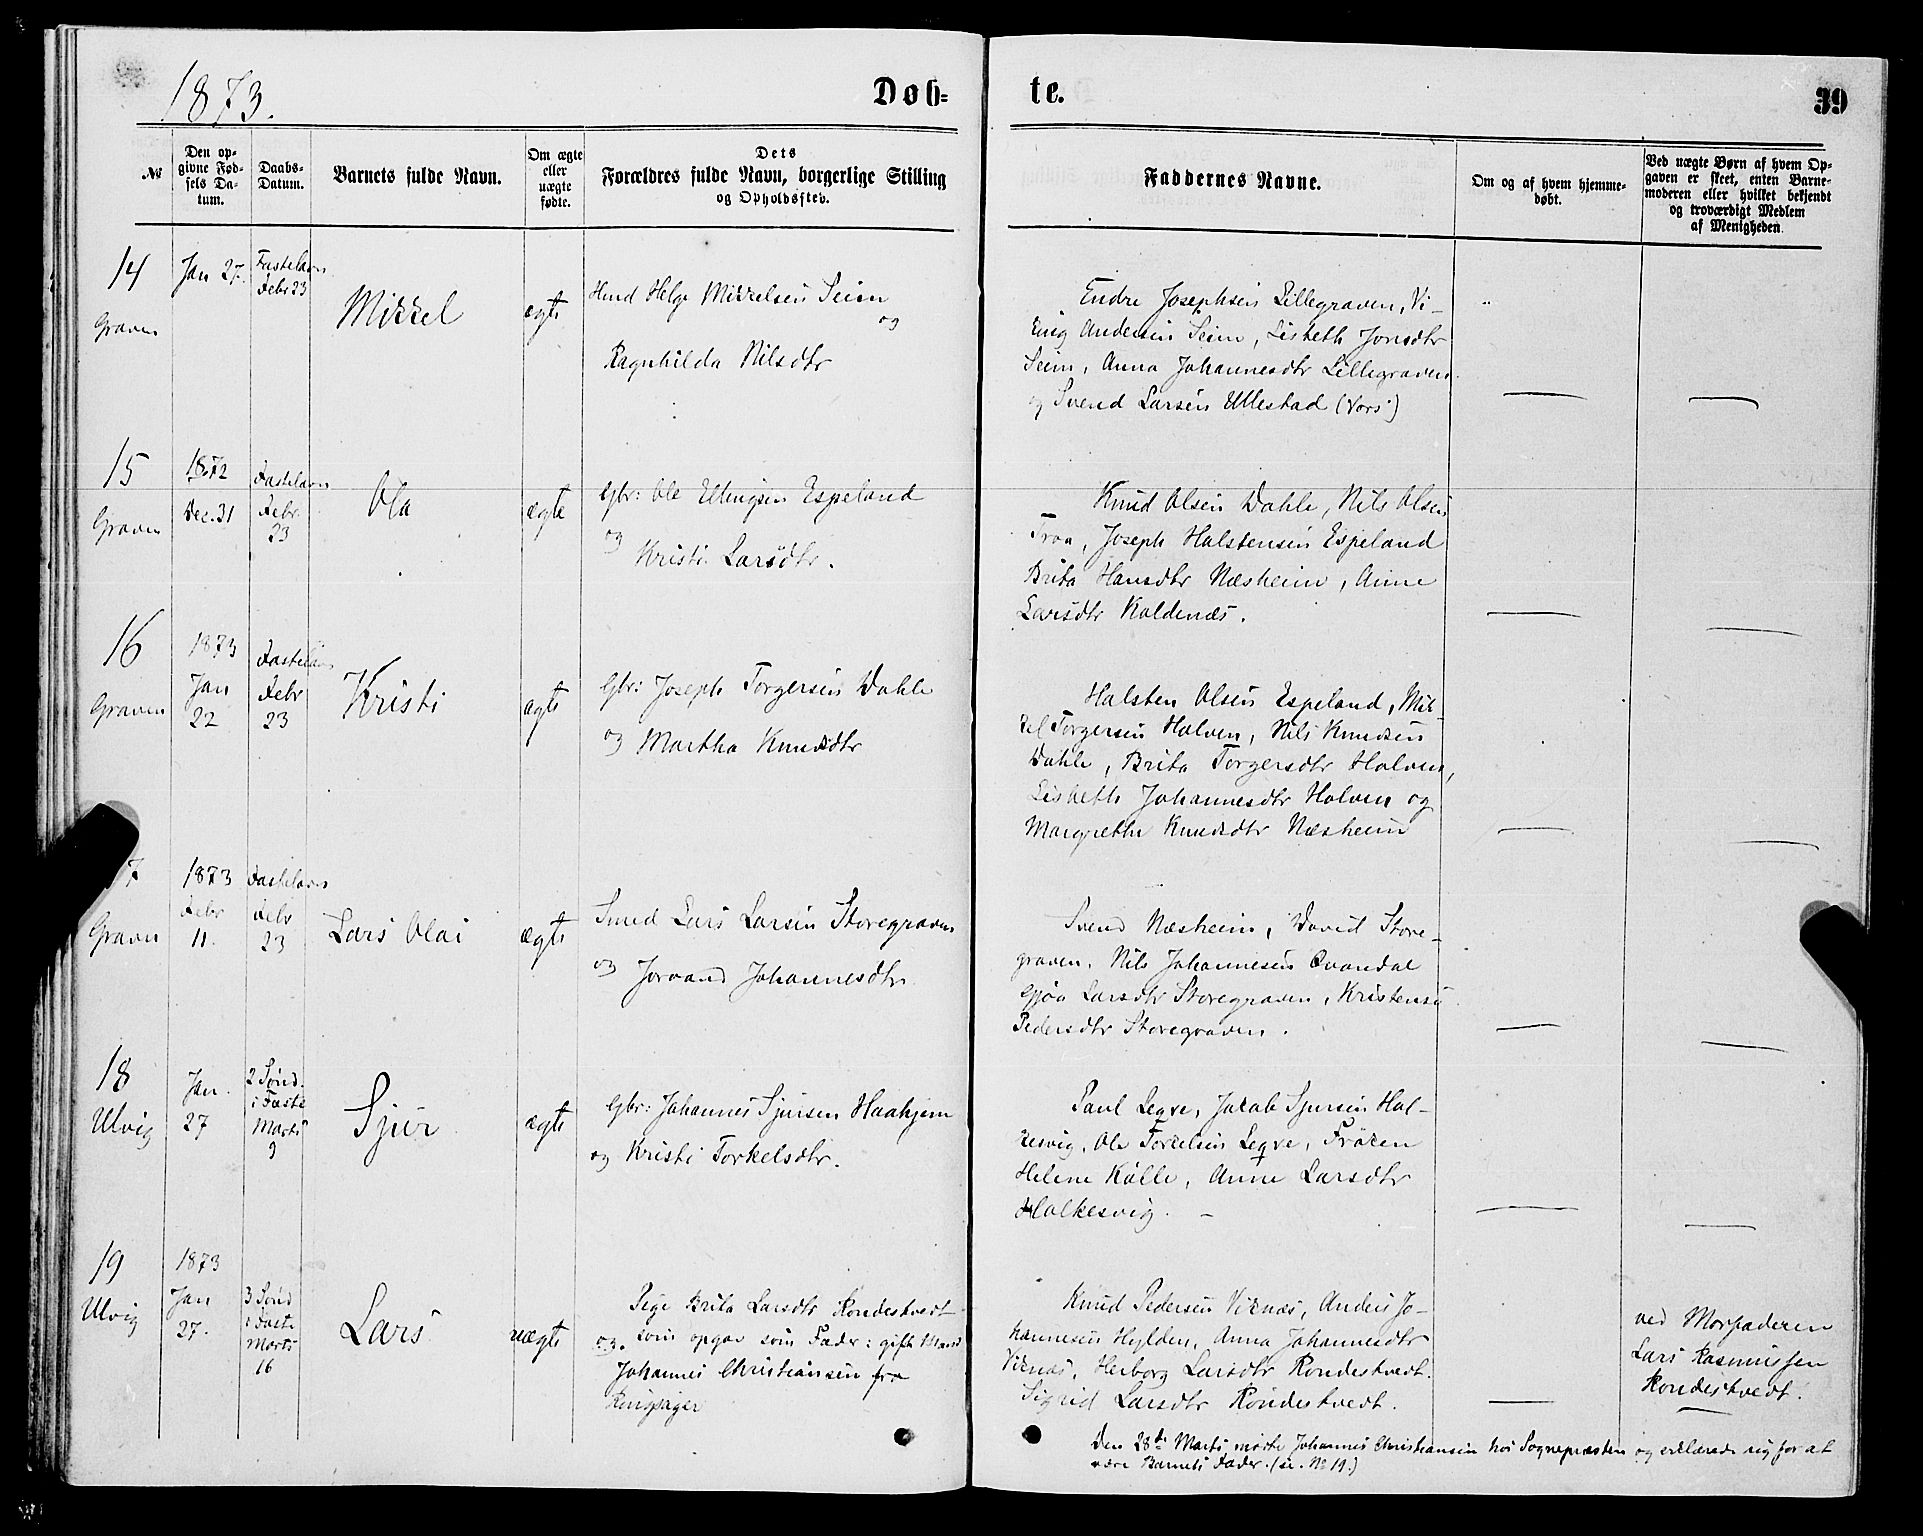 1873. Døb- te. 39
№
Den opgivne Fødsels Datum.
Daabs-Datum.
Barnets fulde Navn.
Om ægte eller uægte fødte.
Dets Forældres fulde Navn, borgerlige Stilling og Opholdssted.
Faddernes Navne.
Om og af hvem hjemmedøbt.
Ved uægte Børn af hvem Opgaven er skeet, enten Barnemoderen eller hvilket bekjendt og troværdigt Medlem af Menigheden.
14
Graven
Jan 27.
Fastelavn
Febr 23
Mikkel
ægte
Helge Mikkelsen Seim
og
Ragnhilda Nilsdtr
Endre Josephsen Lillegraven, Vi-
king Andersen Seim, Lisbeth Jonsdtr
Seim, Anna Johannesdtr Lillegraven
og Svend Larsen Ullestad (Vors.)
15
Graven
1872
Dec. 31
Fastelavn
Febr.
23
Ola
ægte
Gbr: Ole Ellingsen Espeland
og
Kristi Larsdtr.
Knud Olsen Dahle, Nils Olsen
Traa, Joseph Halstensen Espeland
Brita Hansdtr Næsheim, Anne
Larsdtr Koldenæs.
16
Graven
1873
Jan
22
Fastelavn
Febr
23
Kristi
ægte
Gbr: Joseph Torgersen Dahle
og Martha Knudsdtr
Halsten Olsen Espeland, Mik-
kel Torgersen Halven, Nils Knudsen
Dahle, Brita Torgersdtr Halven,
Lisbeth Johannesdtr Halven og
Margrethe Knudsdtr Næsheim
17
Graven
1873
Febr
11.
Fastelavn
Febr
23
Lars Olai
ægte
Smed Lars Larsen Storegraven
og Jorand Johannesdtr
Svend Næsheim, David Store-
graven, Nils Johannesen Qvandal
Gjøa Larsdtr Storegraven, Kristense
Pedersdtr Storegraven.
18
Ulvig
Jan.
27
2 Sønd.
i Faste
Marts
9
Sjur
ægte
Gbr: Johannes Sjursen Haahjem
og Kristi Torkelsdtr.
Paul Leqve, Jakob Sjursen Hal-
kesvig, Ole Torkelsen Leqve, Frøken
Helene Kålle, Anne Larsdtr
Halkesvig. -
19
Ulvig
1873
Jan
27.
3 Sønd
i Faste
Marts
16
Lars
uægte
Pige Brita Larsdtr Rondestvedt
og. som opgav som Fader: gift Mand
Johannes Christiansen fra
Ringsager
Knud Pedersen Viknæs, Anders Jo-
hannesen Hylden, Anna Johannesdtr
Viknæs, Herborg Larsdtr Rondestvedt.
Sigrid Larsdtr Rondestvedt.
ved Morfaderen
Lars Rasmussen
Rondestvedt.
Den 28de Marts mødte Johannes Christiansen hos Sognepræsten og erklærede sig for at
være Barnets Fader. (se. № 19.)